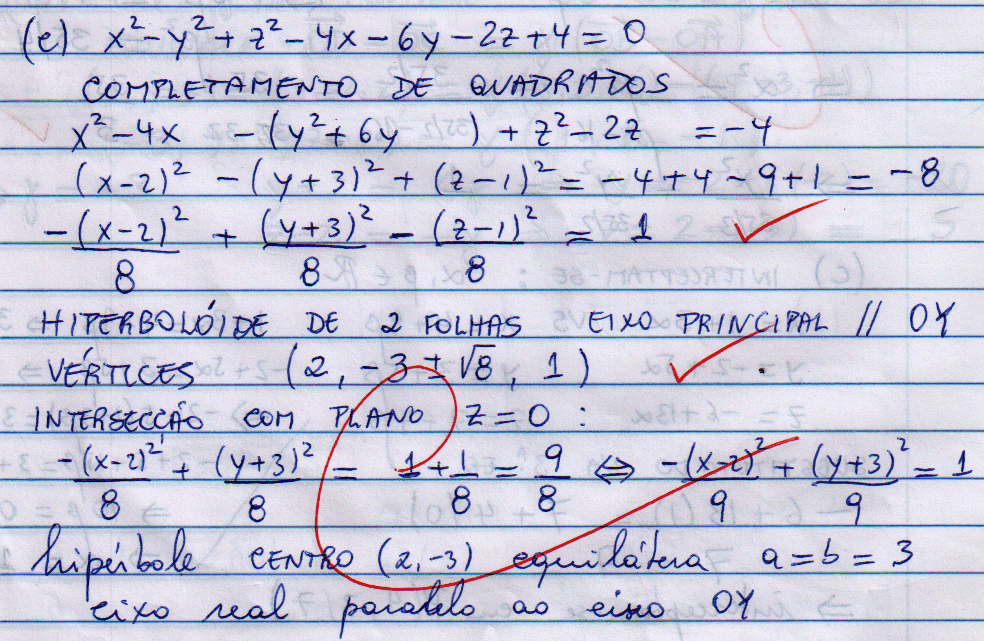 (e) x² - y² + z² - 4x - 6y - 2z + 4 = 0
COMPLETAMENTO DE QUADRADOS
x² - 4x - (y² + 6y ) + z² - 2z = -4
(x-2)² - (y+3)² + (z-1)² = -4 + 4 - 9 + 1 = -8
-(x-2)²/8 + (y+3)²/8 - (z-1)²/8 = 1
HIPERBOLÓIDE DE 2 FOLHAS EIXO PRINCIPAL // OY
VÉRTICES (2, -3 ± √8, 1)
INTERSECÇÃO COM PLANO z = 0 :
-(x-2)²/8 + (y+3)²/8 = 1 + 1/8 = 9/8 ⇔ -(x-2)²/9 + (y+3)²/9 = 1
hipérbole CENTRO (2,-3) equilátera a = b = 3
eixo real paralelo ao eixo OY